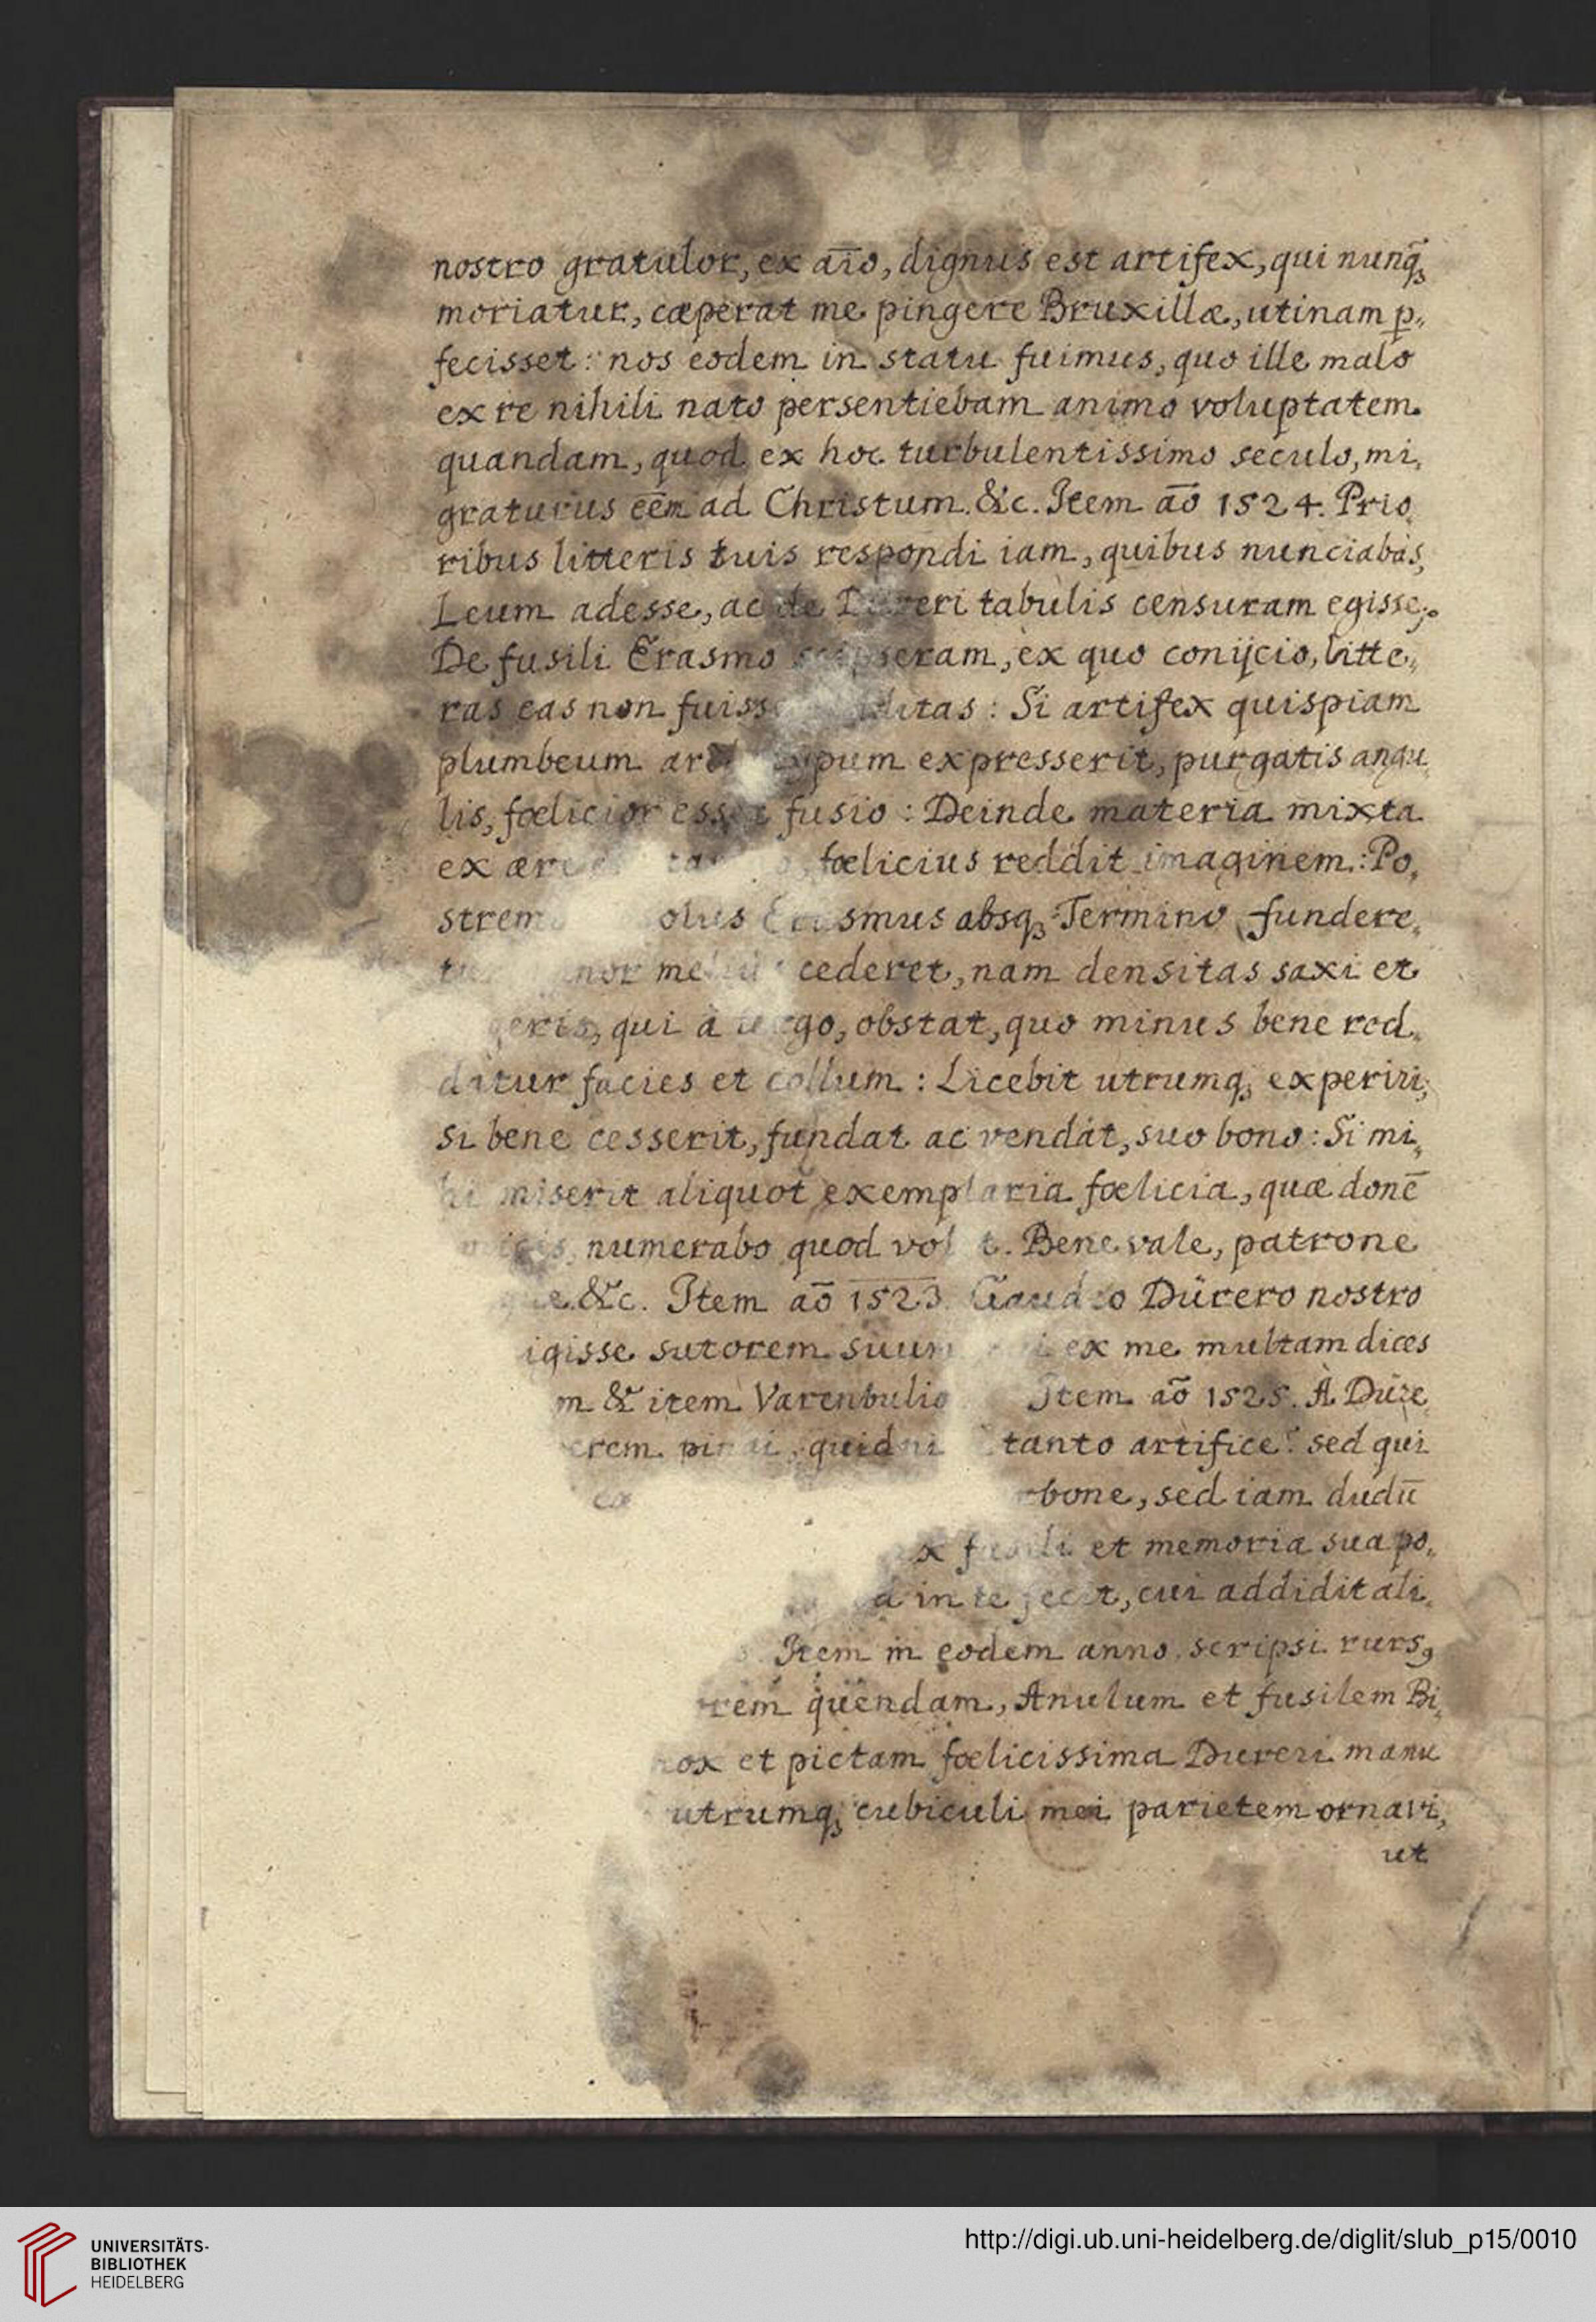 nostro gratulor, ex aīo, dignus est artifex, qui nunq̃
moriatur, cæperat me pingere Bruxillæ, utinam p„
fecisset: nos eodem in statu fuimus, quo ille malo
ex re nihili nato persentiebam animo voluptatem
quandam, quod ex hoc turbulentissimo seculo, mi„
graturus eēm ad Christum. &c. Item aō 1524. Prio„
ribus litteris tuis respondi iam, quibus nunciabas,
Leum adesse, ac de Dureri tabulis censuram egisse.
De fusili Erasmo scripseram, ex quo conijcio, litte„
ras eas non fuiss ditas: Si artifex quispiam
plumbeum ar pum expresserit, purgatis angu„
lis, fœlicior esset fusio: Deinde materia mixta
ex ære fœlicius reddit imaginem: Po„
strem olus Erasmus absq; Termino fundere„
nor me cederet, nam densitas saxi et
geris, qui à tergo, obstat, quo minus bene red„
ditur facies et collum: Licebit utrumq; experiri;
si bene cesserit, fundat ac vendat, suo bono: Si mi„
hi miserit aliquot exemplaria fœlicia, quæ donē
numerabo quod vol t. Bene vale, patrone
&c. Item aō 1523. Gaudeo Dürero nostro
igisse sutorem suum ex me multam dices
m & item Varenbulio Item aō 1525. À Düre„
erem pingi, quidni tanto artifice? sed qui
rbone, sed iam dudū
x fusili et memoria sua po„
d in te fecit, cui addidit ali„
Item in eodem anno scripsi rurs9
rem quendam, Anulum et fusilem Bi„
ox et pictam fœlicissima Dureri manu
utrumq; cubiculi mei parietem ornavi,
ut
UNIVERSITÄTS-
BIBLIOTHEK
HEIDELBERG
http://digi.ub.uni-heidelberg.de/diglit/slub_p15/0010